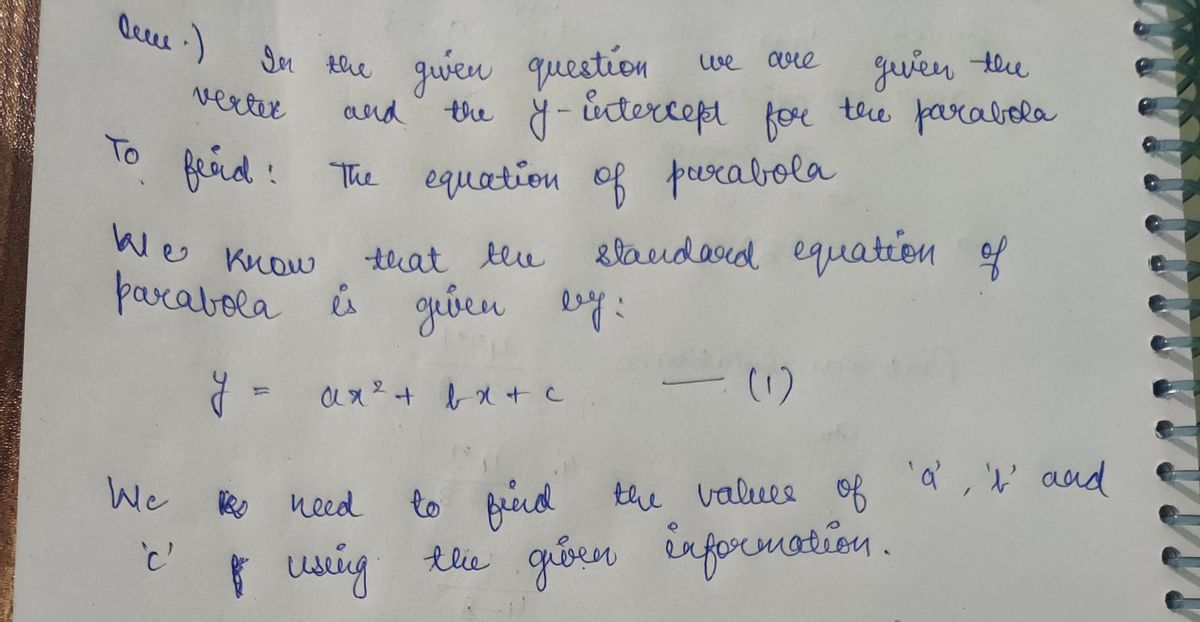 Ans.) In the given question we are given the
vertex and the y-intercept for the parabola
To find: The equation of parabola
We know that the standard equation of
parabola is given by:
y = ax² + bx + c — (1)
We need to find the values of 'a', 'b' and
'c' using the given information.